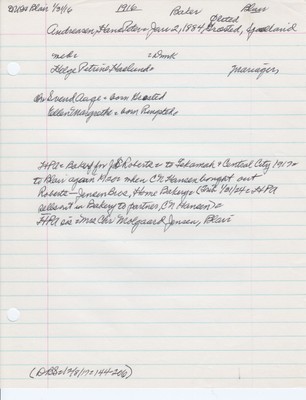 Blair 1916 Baker Blair
Andreasen, Hans Peter = Jan. 2, 1884, Grested, Sjaelland
= Dmk
Helge Petrine Haslund = Mariager
Ch Svend Aage = born Grested
Ellen Margrethe = born Ringsted =
HPA = Bakery for J Roberts = to Tekamah & Central City 1917 =
to Blair again Mgr when CN Hansen bought out
Roberts = Jensen Bros, Home Bakery = HPA
sells int in Bakery to partner, CN Hansen) =
HPA sis = Mrs Chr Molgaard Jensen, Blair